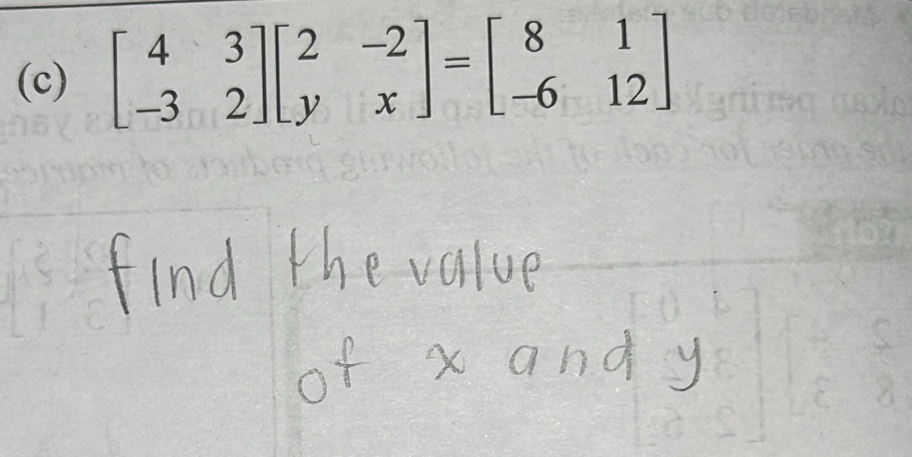 (c) [4 3 -3 2] [2 -2 y x] = [8 1 -6 12]
find the value
of x and y